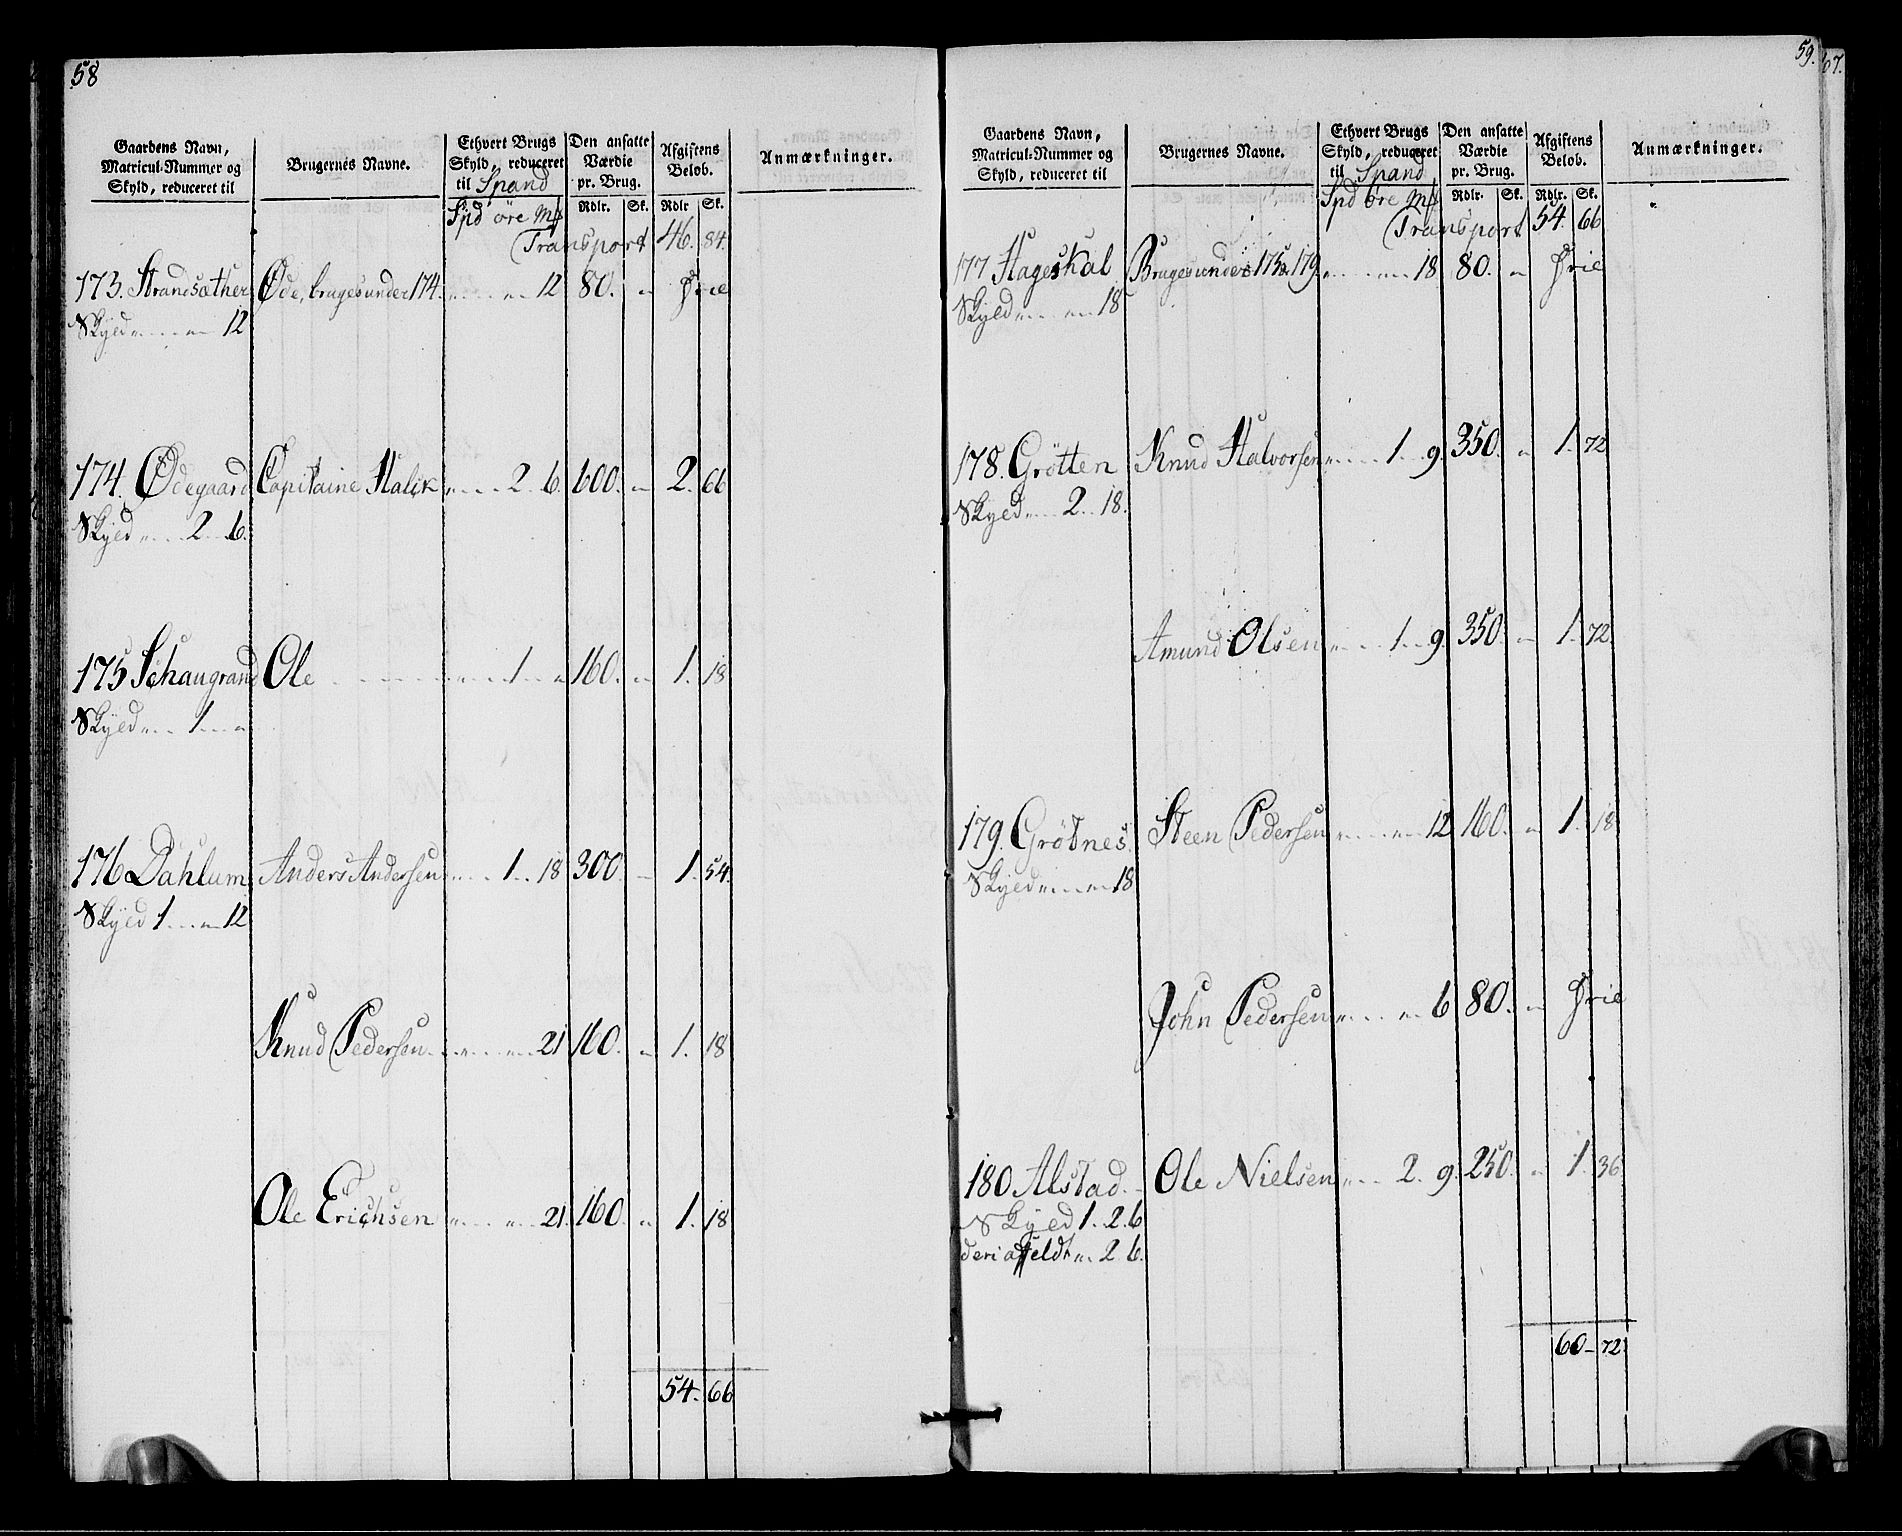 58
Gaardens Navn,
Matricul-Nummer og
Skyld, reduceret til
Brugernes Navne.
Ethvert Brugs
Skyld, reduceret
til Spand
Den ansatte
Værdie
pr. Brug.
Afgiftens
Beløb.
Anmærkninger.
Spd öre M# Rdlr. Sk. Rdlr Sk.
Transport 46. 84.
173. Strandsæther Øde, bruges under 174. 12 80. Frie
Skyld 12
174. Ødegaard Capitaine Halck 2. 6. 600. 2. 66
Skyld 2 6.
175 Schaugrand Ole 1 160. 1. 18
Skyld 1
176 Dahlum Anders Andersen 1 18 300. 1. 54.
Skyld 1 12
Knud Pedersen 21 160. 1. 18
Ole Erichsen 21. 160. 1. 18
54. 66
59.
67.
Gaardens Navn,
Matricul-Nummer og
Skyld, reduceret til
Brugernes Navne.
Ethvert Brugs
Skyld, reduceret
til Spand
Den ansatte
Værdie
pr. Brug.
Afgiftens
Beløb.
Anmærkninger.
Spd öre M# Rdlr. Sk. Rdlr. Sk.
Transport 54. 66
177 Hageskal Bruges under 175 & 179 18 80. Frie
Skyld 18
178. Grötten Knud Halvorsen 1 9. 350. 1. 72
Skyld 2 18.
Amund Olsen 1 9. 350. 1. 72.
179. Grötnes Steen Pedersen 12 160. 1. 18
Skyld 18
John Pedersen 6 80. Frie
180 Alstad Ole Nielsen 2. 9. 250. 1. 36
Skyld 1. 2. 6
deri affeldt 2. 6.
60 72.